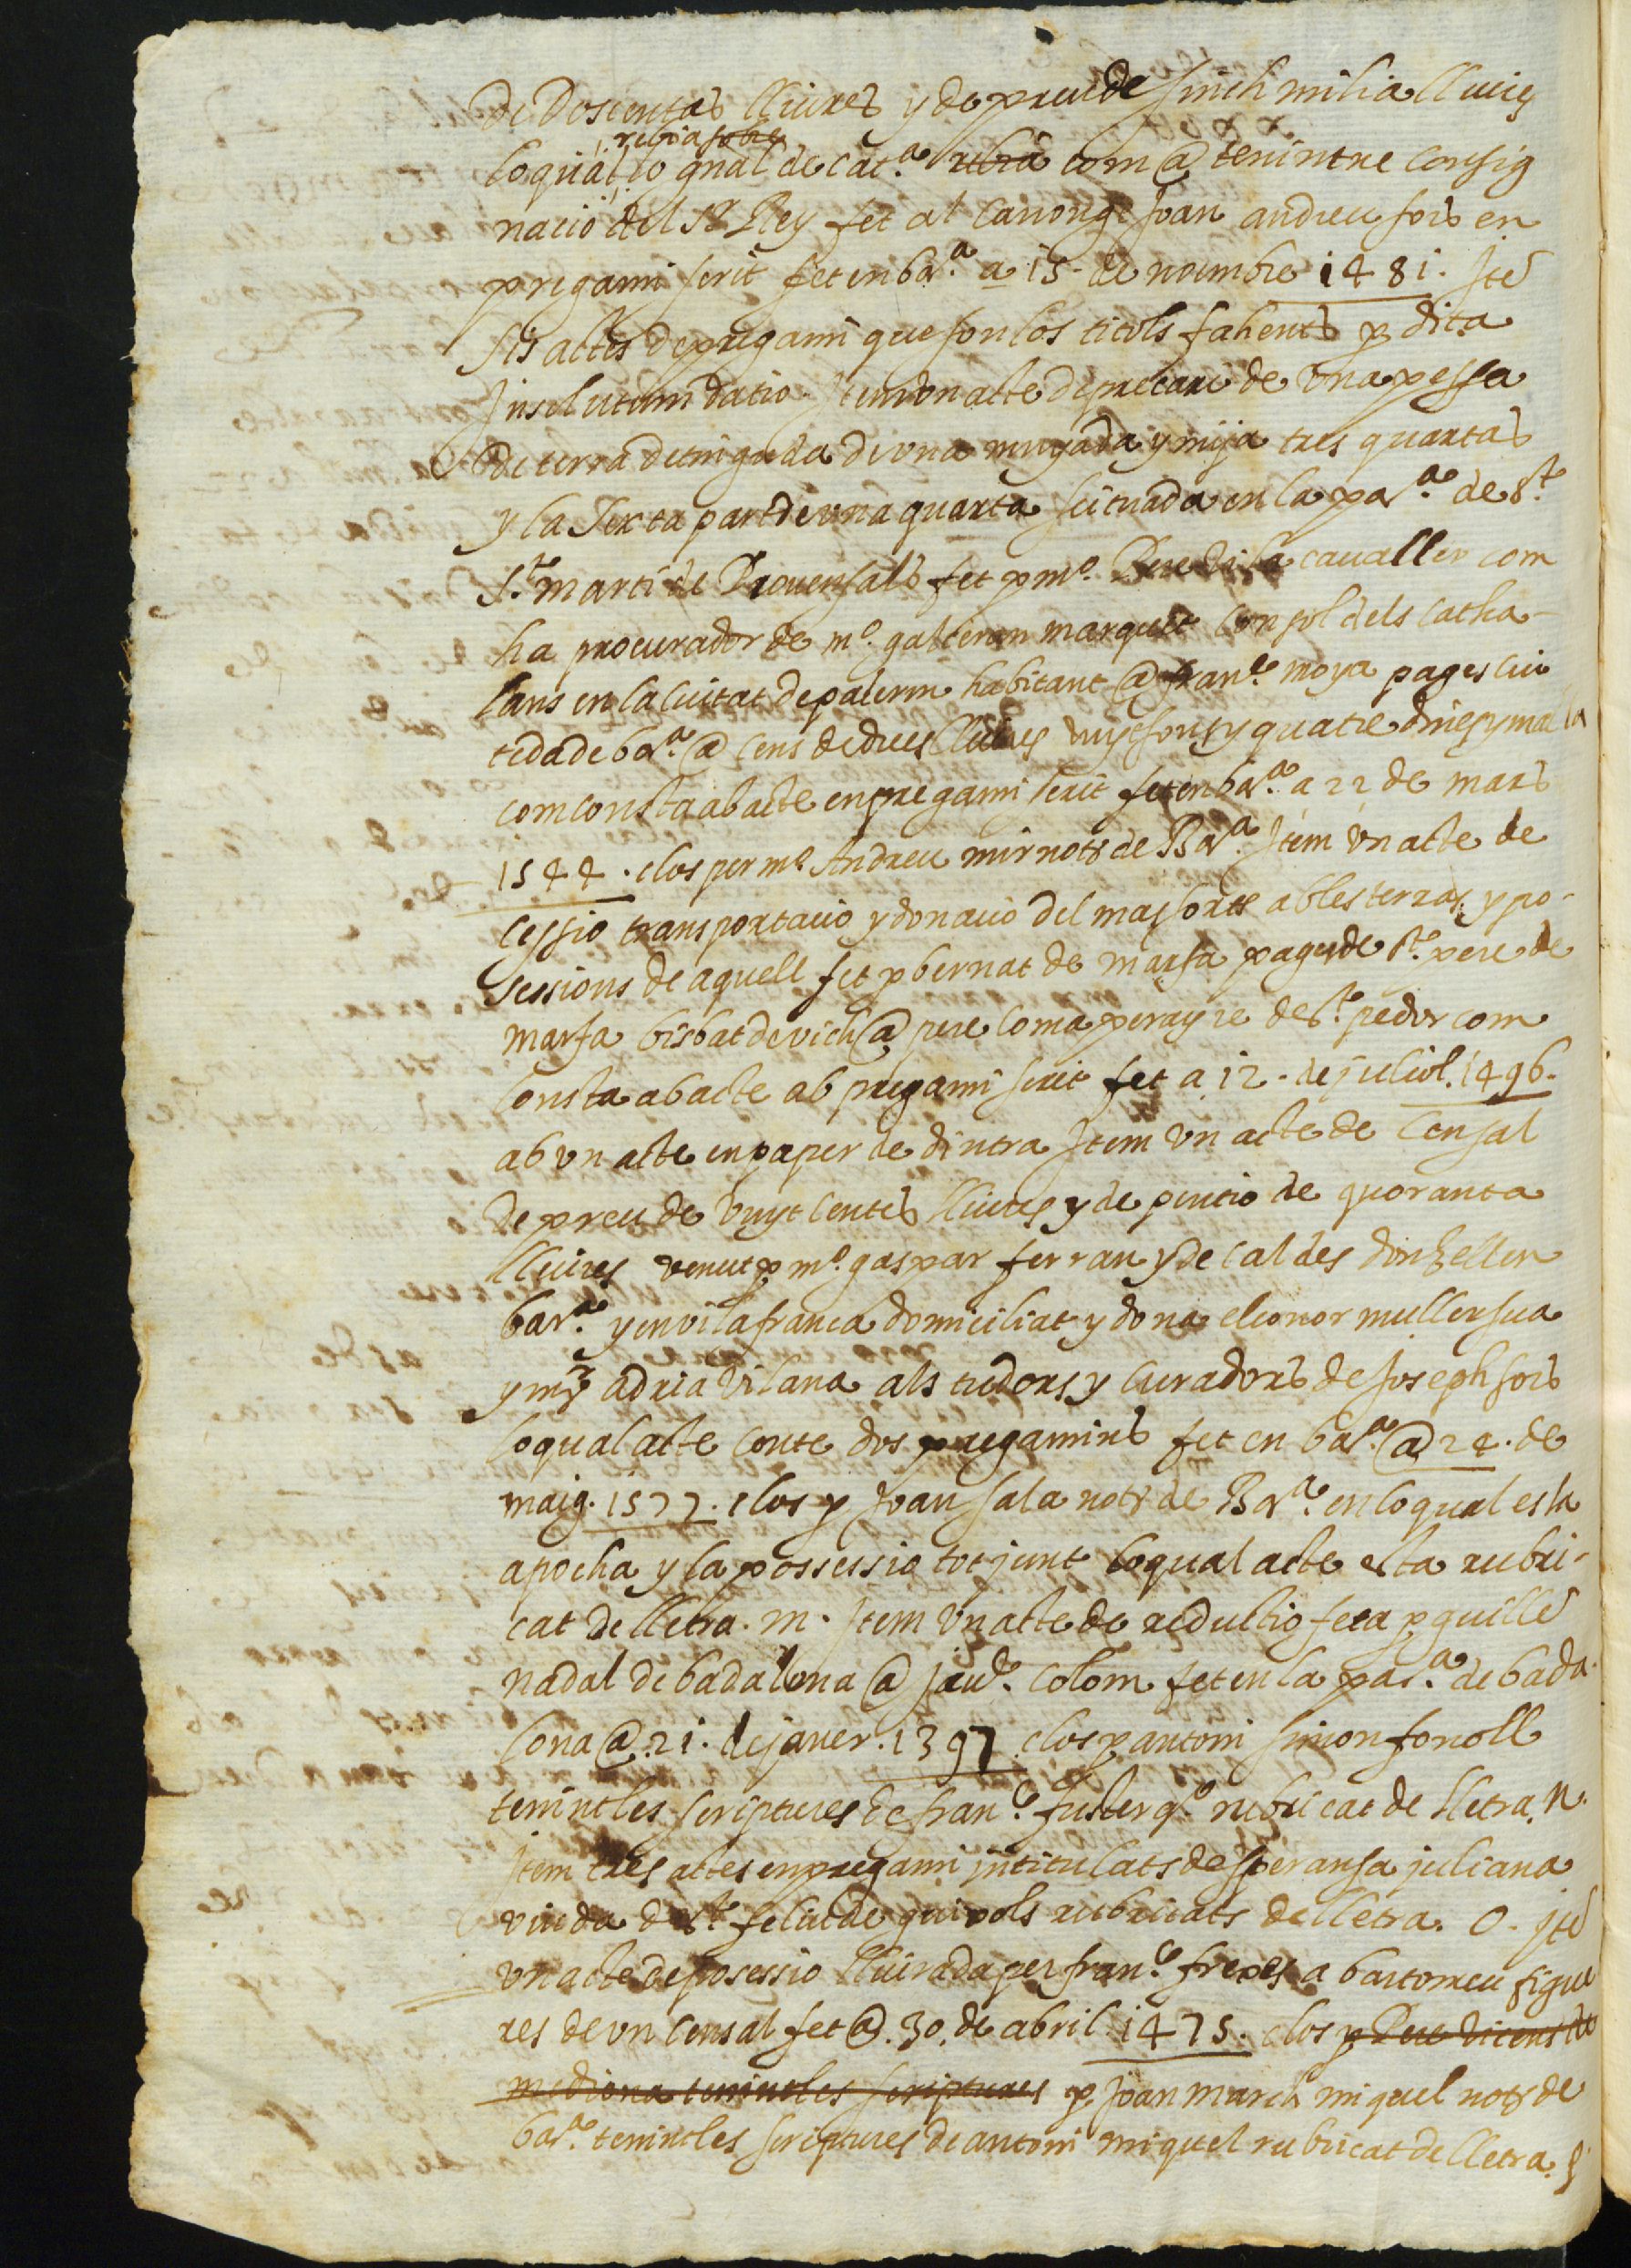 de doscentas lliures y de preu de sinch milia lliures
rebia sobre
loqual lo gnal de Cat.ª rebia com @ tenintne consig
nacio del Sr Rey fet al canonge Joan andreu sors en
pregami scrit fet en bar.ª a 15 de noembre 1481. Ite
sis actes de pregami que son los titols fahents p dita
Insolutum datio. Item vn acte de precari de vna pessa
de terra detinguda de vna mujada y mija tres quartas
y la sexta part de vna quarta scituada en la par.ª de s.t
S.t marti de Prouensals fet p m.º Pere caualler com
ha procurador de m.º galceran marquet consol dels catha-
lans en la ciutat de palerm habitant @ fran.co moya pages ciu
tedà de bar.ª @ cens de dues lliures vuyt sous y quatre dines y malla
com consta ab acte en pregami scrit fet en bar.ª a 22 de mars
1544. clos per m.º Andreu mir notr de Bar.ª Item vn acte de
cessio transportacio y donacio del mas sorts ab les terras y po-
sessions de aquell fet p bernat de marfa pages de s.t pere de
marfa bisbat de vich @ pere coma perayre de s.t pedor com
consta ab acte ab pregami scrit fet a 12 de juliol. 1496.
ab vn acte en paper de dintra Item vn acte de Censal
de preu de vuyt centes lliures y de pencio de quoranta
lliures venut p m.º gaspar ferran y de caldes donzell en
bar.ª y en vilafranca domiciliat y dona elionor muller sua
y mr adria vilana als tudors y curadors de Joseph sors
loqual acte conte dos pregamins fet en bar.ª @ 24. de
maig. 1577. clos p Joan sala notr de Bar.ª en loqual es la
apocha y la possessio tot junt loqual acte esta rubri-
cat de lletra. m. Item vn acte de reductio feta p guille
nadal de badalona @ Jau.e Colom fet en la par.ª de bada-
lona @ 21. de janer. 1397 clos p antoni simon fonoll
tenint les scriptures de fran.co fuster q.º rubricat de lletra. n.
Item tres actes en pregami intitulats de speransa juliana
viuda de s.t feliu de guixols rubricats de lletra. O. Ite
vn acte de posessio lliurada per fran.co frexes a bartomeu figue
res de vn censal fet @. 30. de abril. 1475. clos p Pere vicens de
mediona tenint les scriptures p Joan march miquel notr de
bar.ª tenint les scriptures de antoni miquel rubricat de lletra.